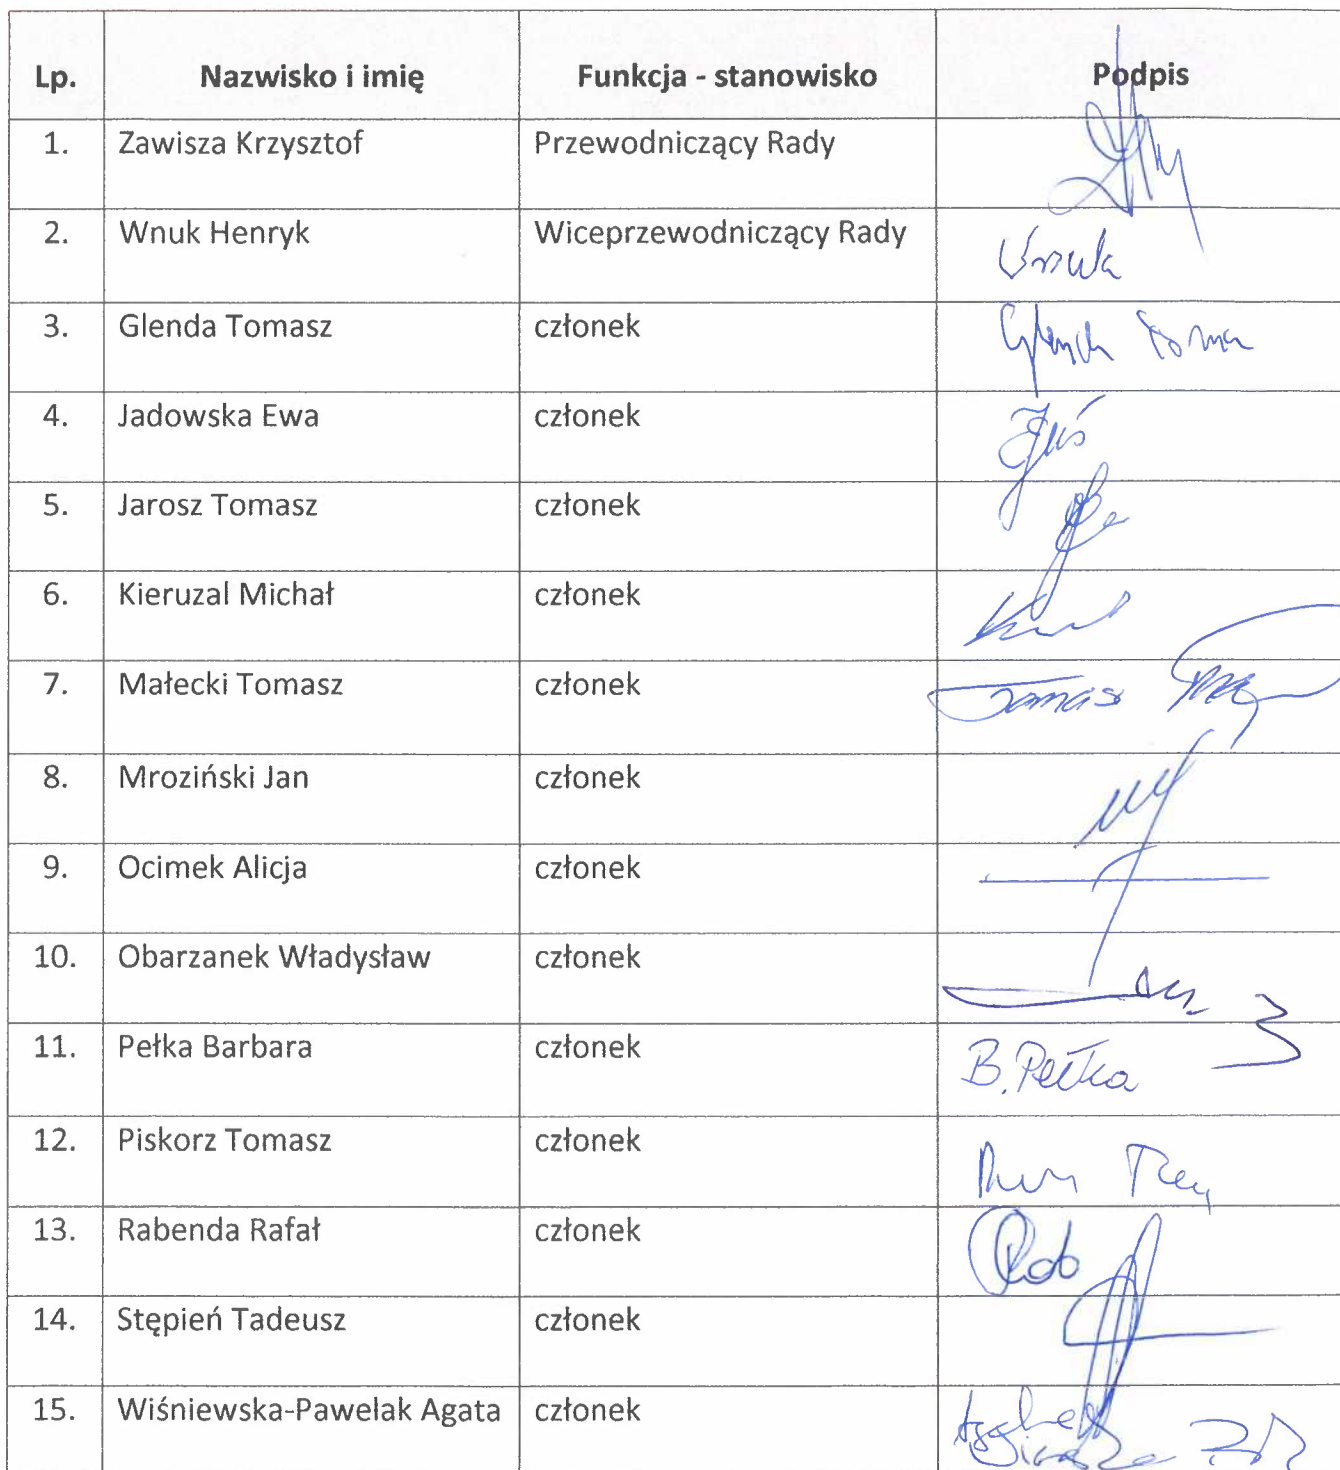 Lp. Nazwisko i imię Funkcja - stanowisko Podpis
1. Zawisza Krzysztof Przewodniczący Rady
2. Wnuk Henryk Wiceprzewodniczący Rady
3. Glenda Tomasz członek
4. Jadowska Ewa członek
5. Jarosz Tomasz członek
6. Kieruzal Michał członek
7. Małecki Tomasz członek
8. Mroziński Jan członek
9. Ocimek Alicja członek
10. Obarzanek Władysław członek
11. Pełka Barbara członek B. Pełka
12. Piskorz Tomasz członek
13. Rabenda Rafał członek
14. Stępień Tadeusz członek
15. Wiśniewska-Pawelak Agata członek